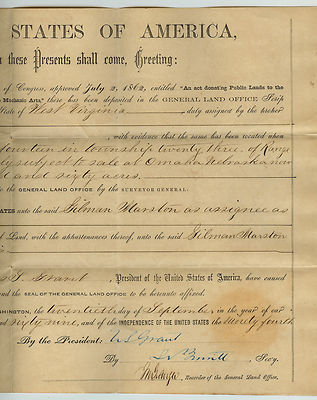 STATES OF AMERICA,
these Presents shall come, Greeting:
of Congress, approved July 2, 1862, entitled "An act donating Public Lands to the
Mechanic Arts," there has been deposited in the GENERAL LAND OFFICE Scrip
State of West Virginia duly assigned by the
, with evidence that the same has been located upon
fourteen in township twenty three of Range
subject to sale at Omaha Nebraska now
and sixty acres.
to the GENERAL LAND OFFICE by the SURVEYOR GENERAL:
unto the said Gilman Marston as assignee as
Land, with the appurtenances thereof, unto the said Gilman Marston
S. Grant, President of the United States of America, have caused
the SEAL OF THE GENERAL LAND OFFICE to be hereunto affixed.
the twentieth day of September in the year of our
sixty nine, and of the INDEPENDENCE OF THE UNITED STATES the Ninety fourth
By the President: US Grant
By , Secy.
, Recorder of the General Land Office.